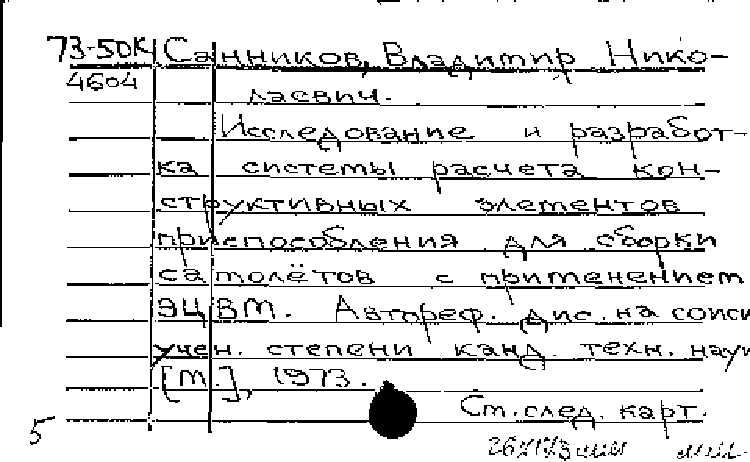 73-50К Санников, Владимир Нико-
4604
лаевич.
Исследование и разработ-
ка системы расчета кон-
структивных элементов
приспособления для сборки
самолётов с применением
ЭЦВМ. Автореф. дис. на соиск
учен. степени канд. техн. наук
[М.], 1973.
Ст. след. карт.
5